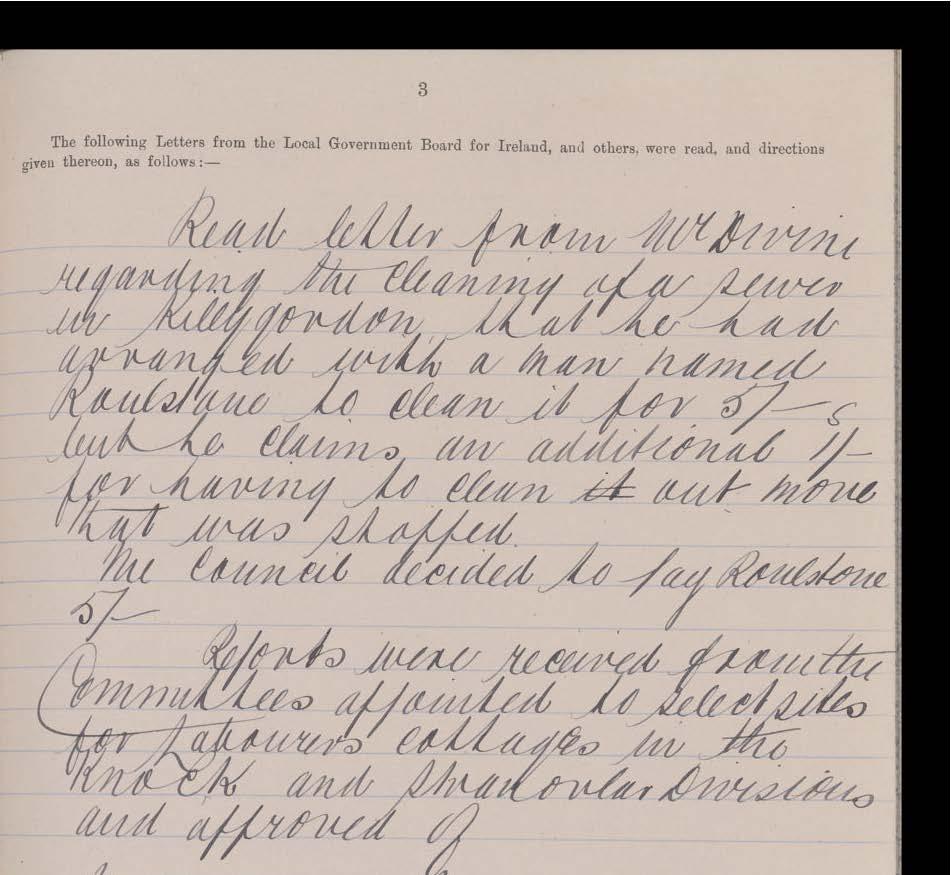 3
The following Letters from the Local Government Board for Ireland, and others, were read, and directions
given thereon, as follows:—
Read letter from Mr Divine
regarding the cleaning of a sewer
in Killygordon, that he had
arranged with a man named
Roulstone to clean it for 5/-
but he claims an additional 1/-
for having to clean it out more
that was stopped.
The Council decided to pay Roulstone
5/-
Reports were received from the
Committees appointed to select sites
for Labourers cottages in the
Knock and Stranorlar Divisions
and approved of